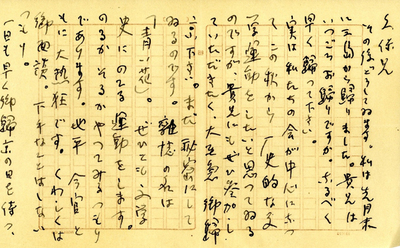 久保兄
その後どうしてゐます。私は先月末
に三島から歸りました。貴兄は
いつごろお歸りですか。なるべく
早く歸って下さい。
實は私たちの会が中心になっ
て、この秋から、歴史的な文
学運動をしたいと思って居る
のですが、貴兄にもぜひ参加し
ていただきたく、大至急 御歸
京下さい。まだ秘密にして
ゐるのです。雜誌の名は
「青い花」。ぜひとも文学
史にのこる運動をします。
のるかそるかやってみるつもり
であります。地平 今官と
もに大熱狂です。くわしくは
御面談。下手なことはしない
一日も早く御歸京の日を待つ、